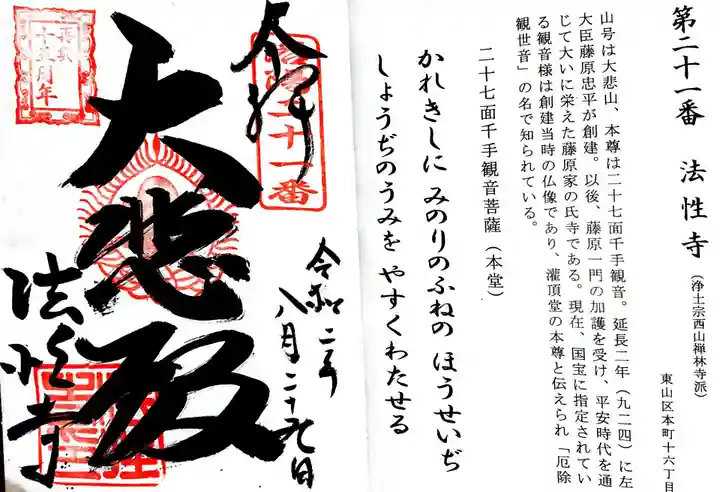 第二十一番 法性寺（浄土宗西山禅林寺派）
東山区本町十六丁目
山号は大悲山、本尊は二十七面千手観音。延長二年（九二四）に左
大臣藤原忠平が創建。以後、藤原一門の加護を受け、平安時代を通
じて大いに栄えた藤原家の氏寺である。現在、国宝に指定されてい
る観音様は創建当時の仏像であり、灌頂堂の本尊と伝えられ「厄除
観世音」の名で知られている。
二十七面千手観音菩薩（本堂）
かれきしに みのりのふねの ほうせいぢ
しょうぢのうみを やすくわたせる
奉拝
二十一番
大悲殿
令和二年
八月二十九日
法性寺
再興
十五周年